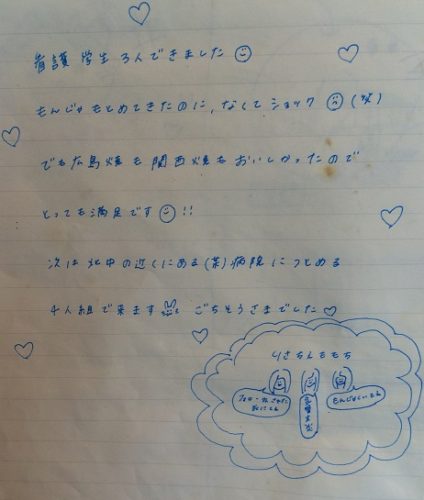 看護学生3人できました
もんじゃもとめてきたのに、なくてショック (笑)
でも広島焼も関西焼もおいしかったので
とっても満足です!!
次は北中の近くにある(某)病院につとめる
4人組で来ます ごちそうさまでした
りさちえももち